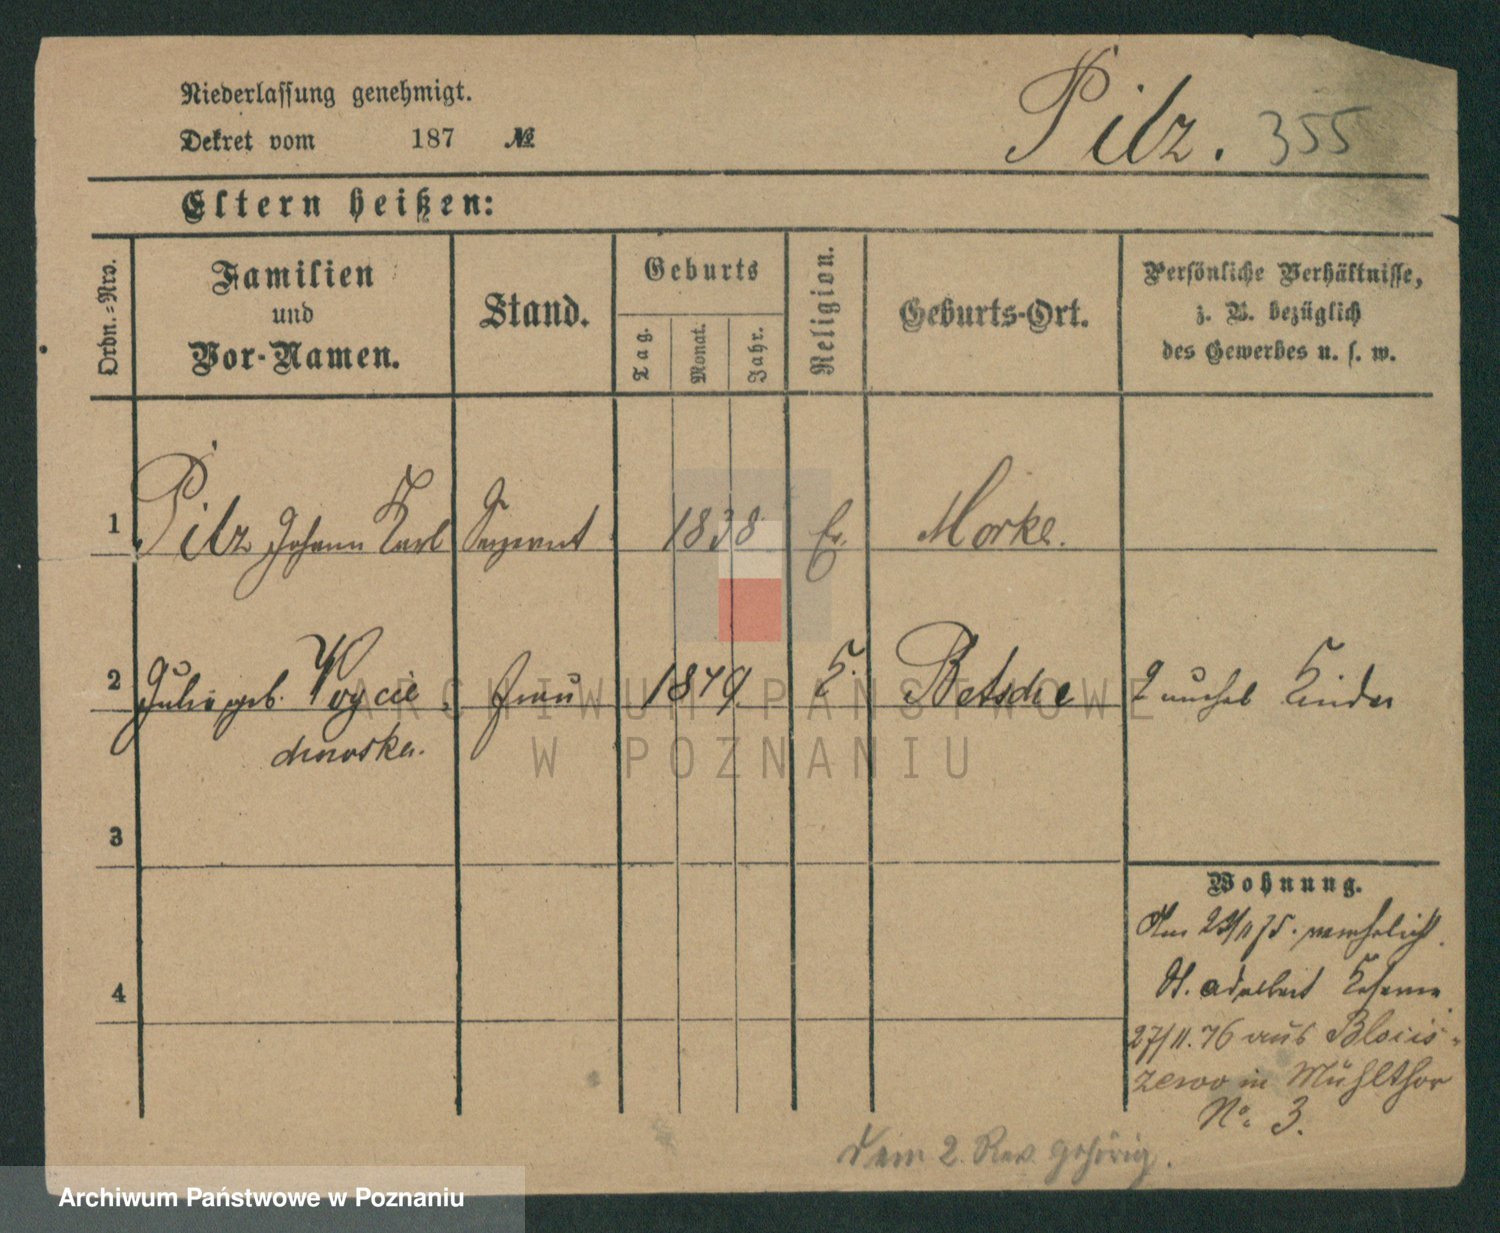 Niederlassung genehmigt.
Dekret vom 187 №
Pilz. 355
Eltern heißen:
Ordn.-Nro.
Familien
und
Vor-Namen.
Stand.
Geburts
Tag.
Monat.
Jahr.
Religion.
Geburts-Ort.
Persönliche Verhältnisse,
z. B. bezüglich
des Gewerbes u. s. w.
1 Pilz Johann Karl Sergeant 1838 Ev. Morke.
2 Julie geb. Woycie Frau 1849. K. Betsche 2 Kinder
chowska.
3
Wohnung.
Am
4 St. Adalbert Kaserne
27/11. 76 aus Blocis-
zewo in Mühlthor
No. 3.
Dem 2. Rev. gehörig.
ARCHIWUM PAŃSTWOWE
W POZNANIU
Archiwum Państwowe w Poznaniu